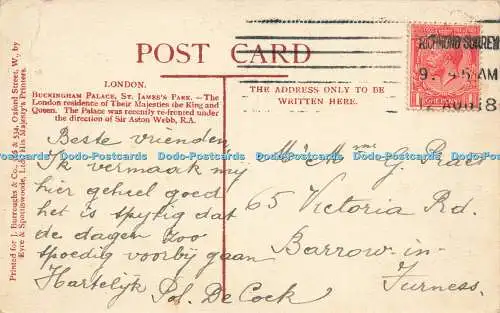 POST CARD
LONDON.
BUCKINGHAM PALACE, ST. JAMES'S PARK. — The
London residence of Their Majesties the King and
Queen. The Palace was recently re-fronted under
the direction of Sir Aston Webb, R.A.
THE ADDRESS ONLY TO BE
WRITTEN HERE.
Printed for J. Burroughs & Co., & 534, Oxford Street, W., by
Eyre & Spottiswoode, Ltd., His Majesty's Printers.
RICHMOND SURREY
AM
18
Beste vrienden
Ik vermaak my
hier geheel goed
het is spytig dat
de dagen zoo
spoedig voorby gaan
Hartelyk Pol. De Cock
G. Praet
65 Victoria Rd.
Barrow-in-
Furness.
Dodo-Postcards Dodo-Postcards Dodo-Postcards Dodo-Postcards Dodo-Postcards